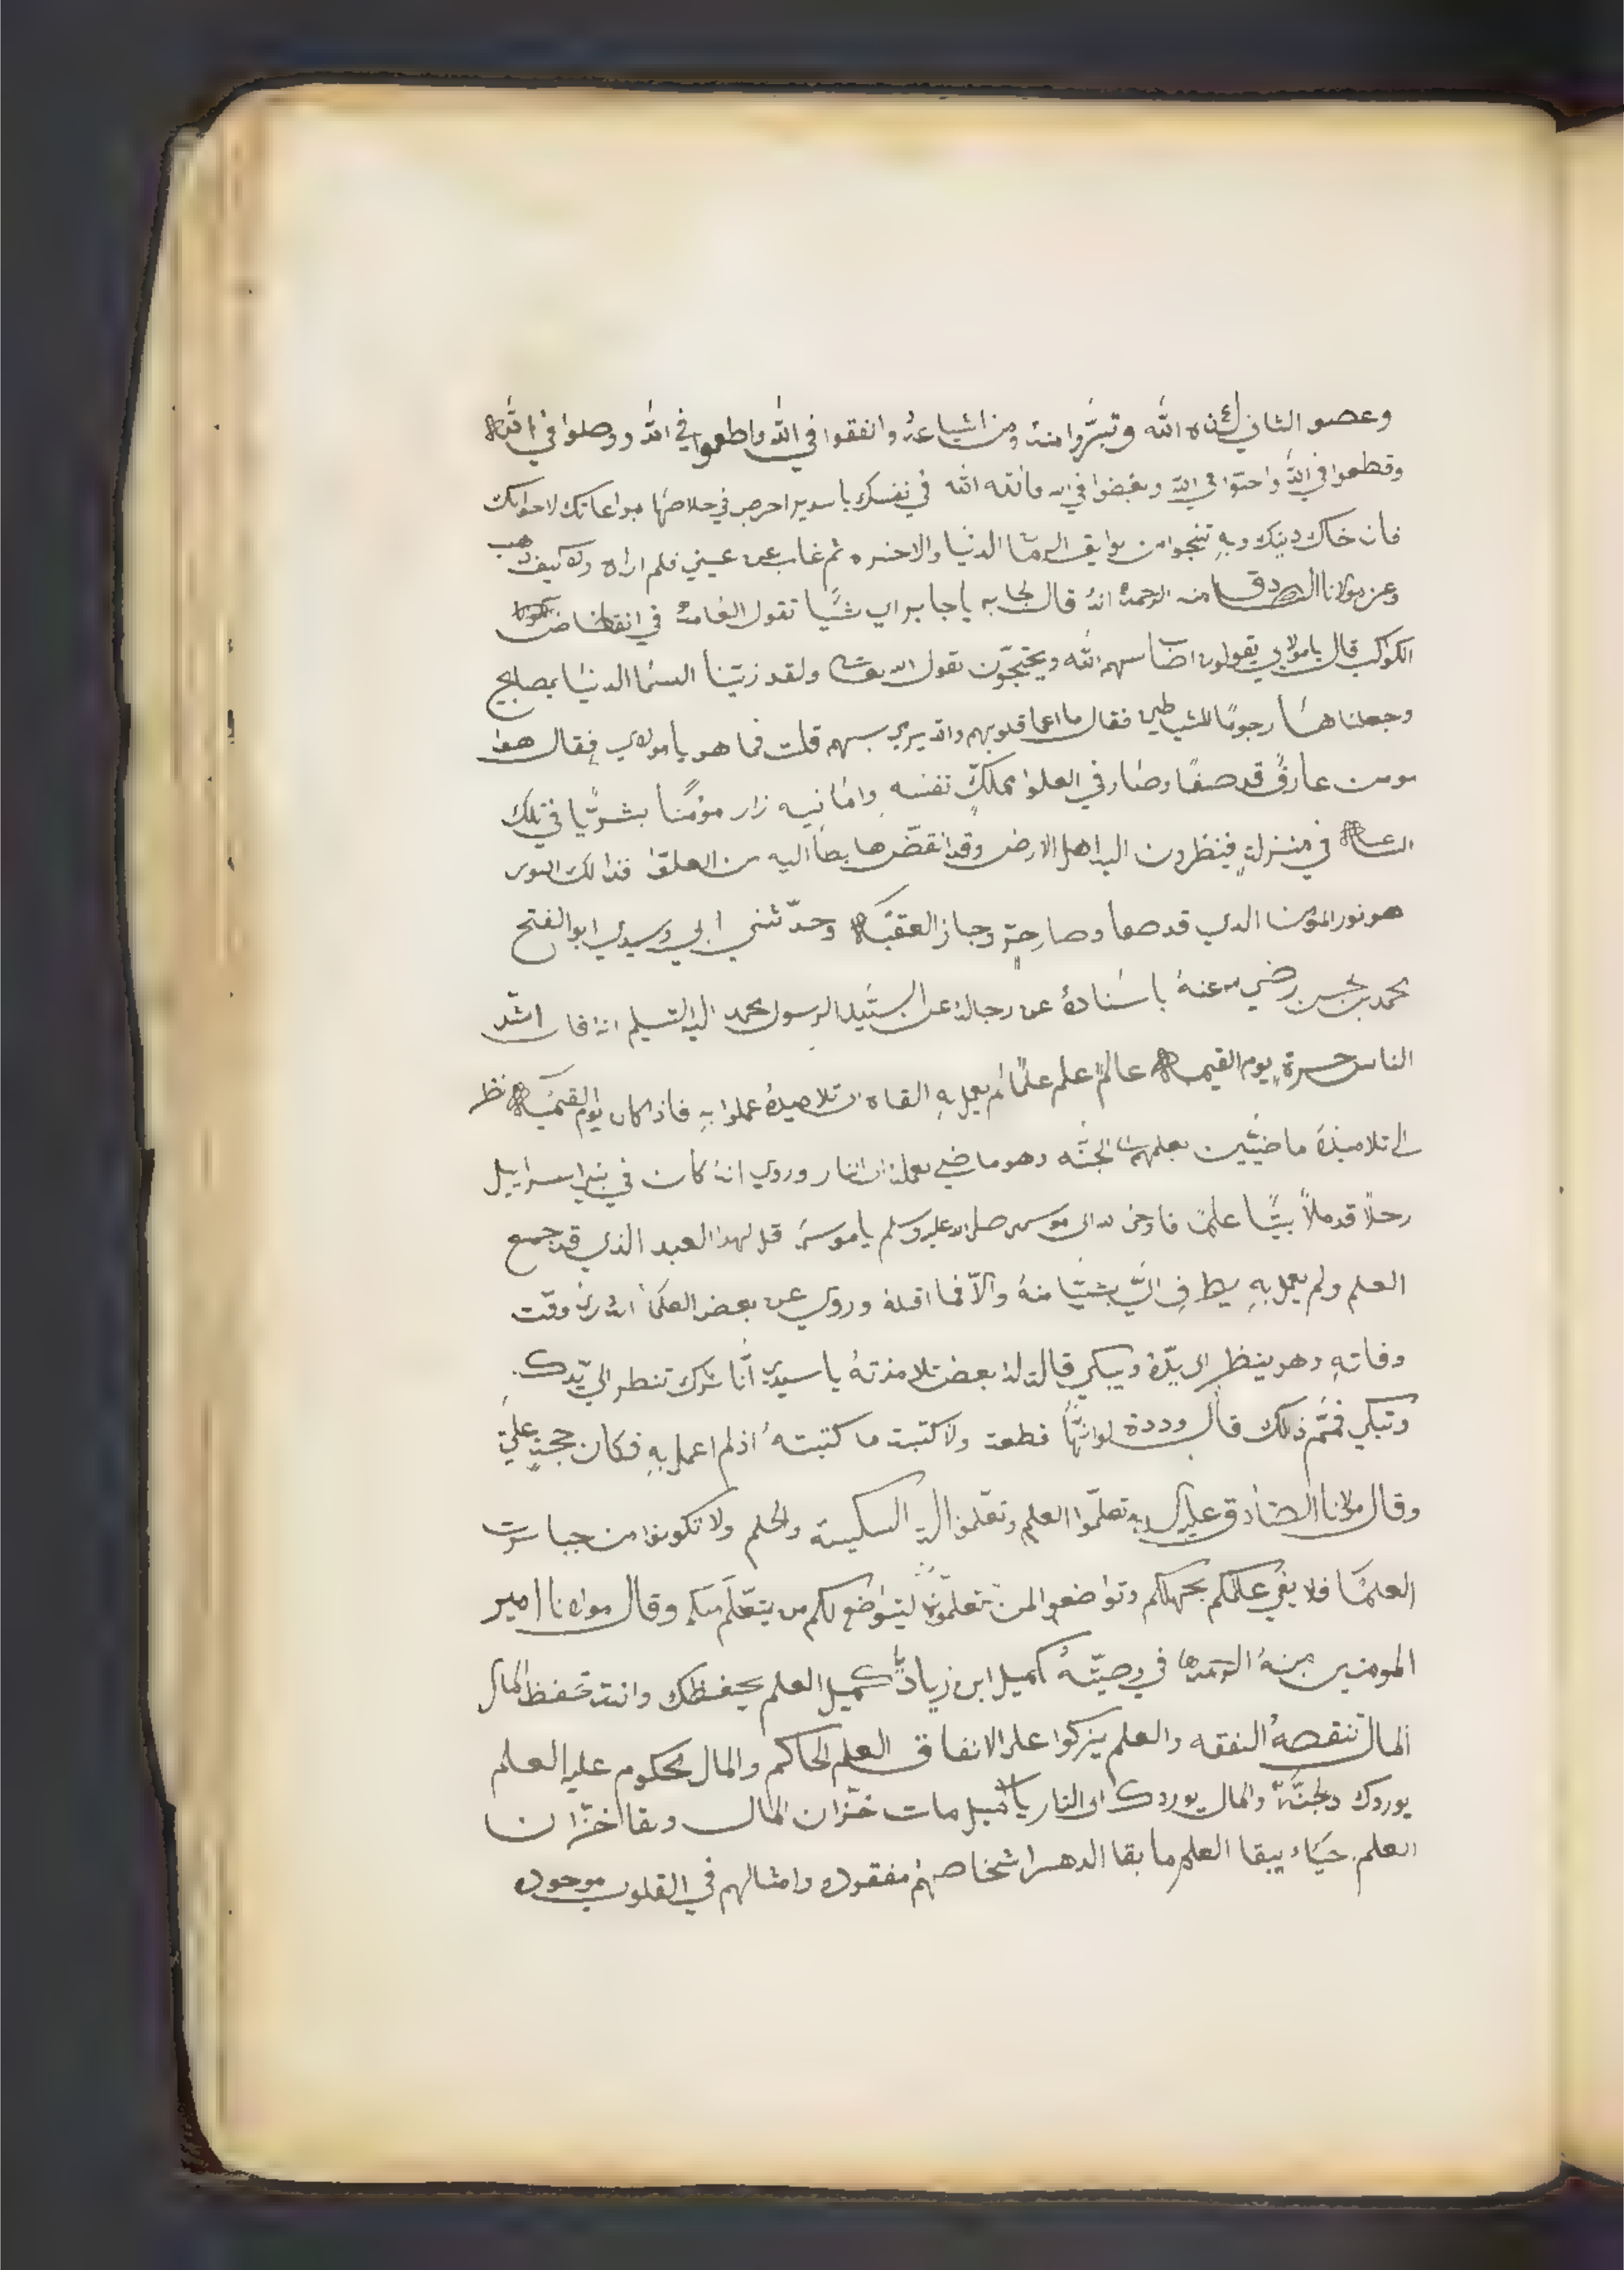 وعصو الثاني لعنه الله وتبرّوا منهُ ومن اشياعهُ وانفقوا في الله واطعموا في الله ووصلوا في الله
وقطعوا في الله واحبّوا في الله وبغضوا في الله فالله الله في نفسك يا سدير احرص في خلاصها بمواعاتك لاخوانك
فان خاك دينك وبهِ تنجوا من بوايق الدنيا والاخره ثم غاب عن عيني فلم اراه ولا كيف ذهب
وعن مولانا الصادق منه الرحمهُ انهُ قال لجابر يا جابر اي شيًا تقول العامهُ في انقضاض
الكواكب قال يا مولاي يقولون اسهم الله ويحتجّون بقول الله ولقد زيّنا السما الدنيا بمصابيح
وجعلناها رجومًا للشياطين فقال ما اعما قلوبهم قلت فما هو يا مولاي فقال هوا
مومن عارفٌ قد صفا وصار في العلوا يملك نفسه زار مؤمنًا بشريًّا في تلك
الساعه في منزلهِ فينظرون اليه اهل الارض وقد انقضّ هابطًا اليه من العلوّا فذالك النور
هو نور المؤمن الدي قد صفا وجاز العقبه وحدّثني ابي وسيدي ابو الفتح
محمد بن الحسن رضي عنهُ باسنادهُ عن رجالهُ عن السيّد الرسول محمد اليه التسليم انه قال اشدّ
الناس حسرة يوم القيمه عالمٌ علم علمًا لم يعمل بهِ القاه الى تلاميذهُ عملوا بهِ فاذا كان يوم القيمه نظر
الى تلاميذهُ ماضيين بعلمهم الى الجنّه وهو ماضي بعلمهُ الى النار وروي انهُ كان في بني اسراييل
رجلًا قد ملأ بيتًا علمًا فاوحى الله الى موسى صلى الله عليه وسلم يا موسى قل لهذا العبد الذي قد جمع
العلم ولم يعمل بهِ بشيًّا منهُ والّا فما اقبله وروي عن بعض العلما وقت
وفاتهِ وهو ينظر الى يدّهُ ويبكي قال لهُ بعض تلامذتهُ يا سيدي انّا نراك تنظر الى يدّك
وتبكي فممّ ذلك قال وددة لو انّها قطعة ولا كتبة ما كتبتهُ اذ لم اعمل بهِ فكان حجةٍ عليّ
وقال مولانا الصادق تعلّموا العلم وتعلّموا السكينه والحلم ولا تكونوا من جبابرت
العلمَا فلا يفي علمكم بجهلكم وتواضعوا لمن تعلّمونهُ ليتواضع لكم من يتعلّم منكم وقال مولانا امير
المومنين منهُ الرحمه في وصيّتهُ كميل ابن زياد يا كميل العلم يحفظك وانت تحفظ المال
المال تنقصهُ النفقه والعلم يزكوا على الانفاق العلم الحاكم والمال محكوم عليه العلم
يوردك الجنّة والمال يوردك الى النار يا كميل مات خزّان المال وبقا خزّان
العلم حيّاء يبقا العلم ما بقا الدهر اشخاصهم مفقوده وامثالهم في القلوب موجوده